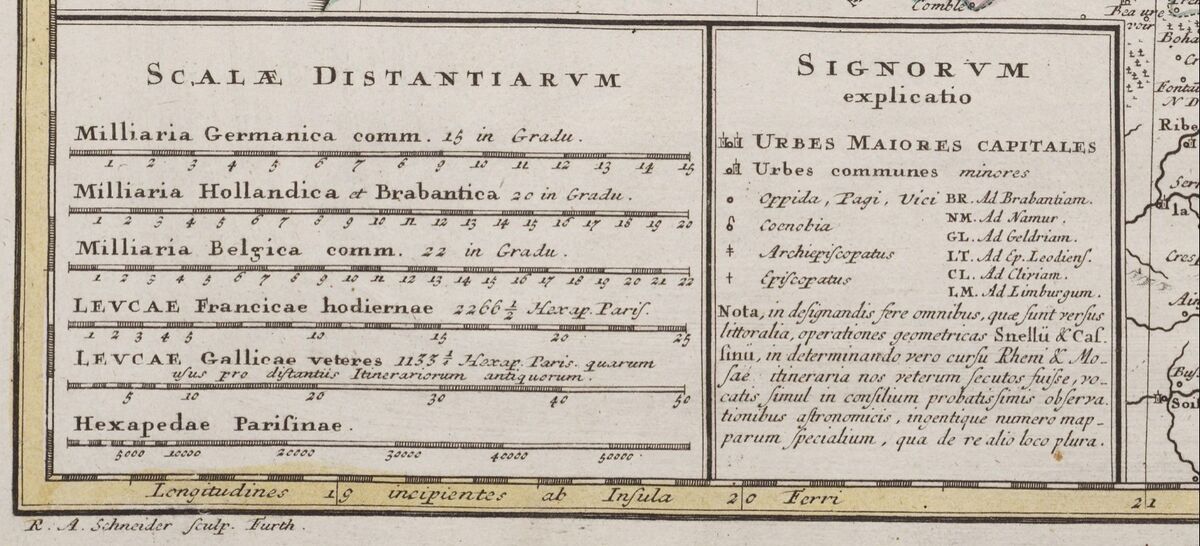 Comble
Beaure
voir
Boha
Cr
Fontai
N D
Ribe
SCALÆ DISTANTIARVM
Milliaria Germanica comm. 15 in Gradu.
1 2 3 4 5 6 7 8 9 10 11 12 13 14 15
Milliaria Hollandica et Brabantica 20 in Gradu.
1 2 3 4 5 6 7 8 9 10 11 12 13 14 15 16 17 18 19 20
Milliaria Belgica comm. 22 in Gradu.
1 2 3 4 5 6 7 8 9 10 11 12 13 14 15 16 17 18 19 20 21 22
LEVCAE Francicae hodiernae 2266 1/2 Hexap. Pariſ.
1 2 3 4 5 10 15 20 25
LEVCAE Gallicae veteres 1133 1/4 Hexap. Paris. quarum
uſus pro diſtantiis Itinerariorum antiquorum.
5 10 20 30 40 50
Hexapedae Pariſinae.
5000 10000 20000 30000 40000 50000
SIGNORVM
explicatio
URBES MAIORES CAPITALES
Urbes communes minores
Oppida, Pagi, Vici
Coenobia
Archiepiſcopatus
Epiſcopatus
BR. Ad Brabantiam.
NM. Ad Namur.
GL. Ad Geldriam.
LT. Ad Ep. Leodienſ.
CL. Ad Cliviam.
LM. Ad Limburgum.
Nota, in deſignandis fere omnibus, quæ ſunt verſus
littoralia, operationes geometricas Snellii & Caſ-
ſinii, in determinando vero curſu Rheni & Mo-
ſae itineraria nos veterum ſecutos fuiſſe, vo-
catis ſimul in conſilium probatiſſimis obſerva
tionibus aſtronomicis, ingentique numero map-
parum ſpecialium, qua de re alio loco plura.
Ser
la
Creſp
Buſ
Soiſ
Longitudines 19 incipientes ab Inſula 20 Ferri 21
R. A. Schneider ſculp. Furth.